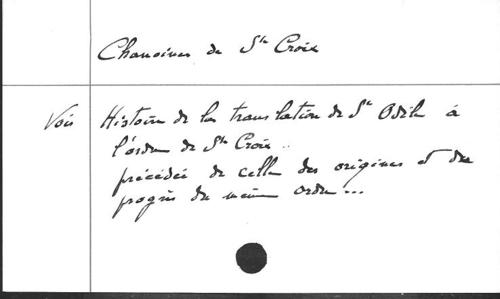 Chanoines de Ste Croix
Vois Histoire de la translation de Ste Odile à
l'ordre de Ste Croix..
précédée de celle des origines et des
progrès du même ordre...